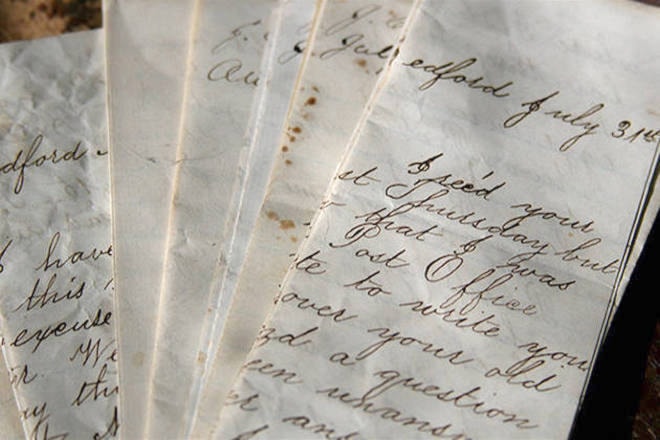 dford
have
this
excuse
We
thi
Au
J. G.
Jul
edford July 31st
I rec'd your
st Thursday but
that I was
Post Office
te to write you
over your old
d a question
een unansw